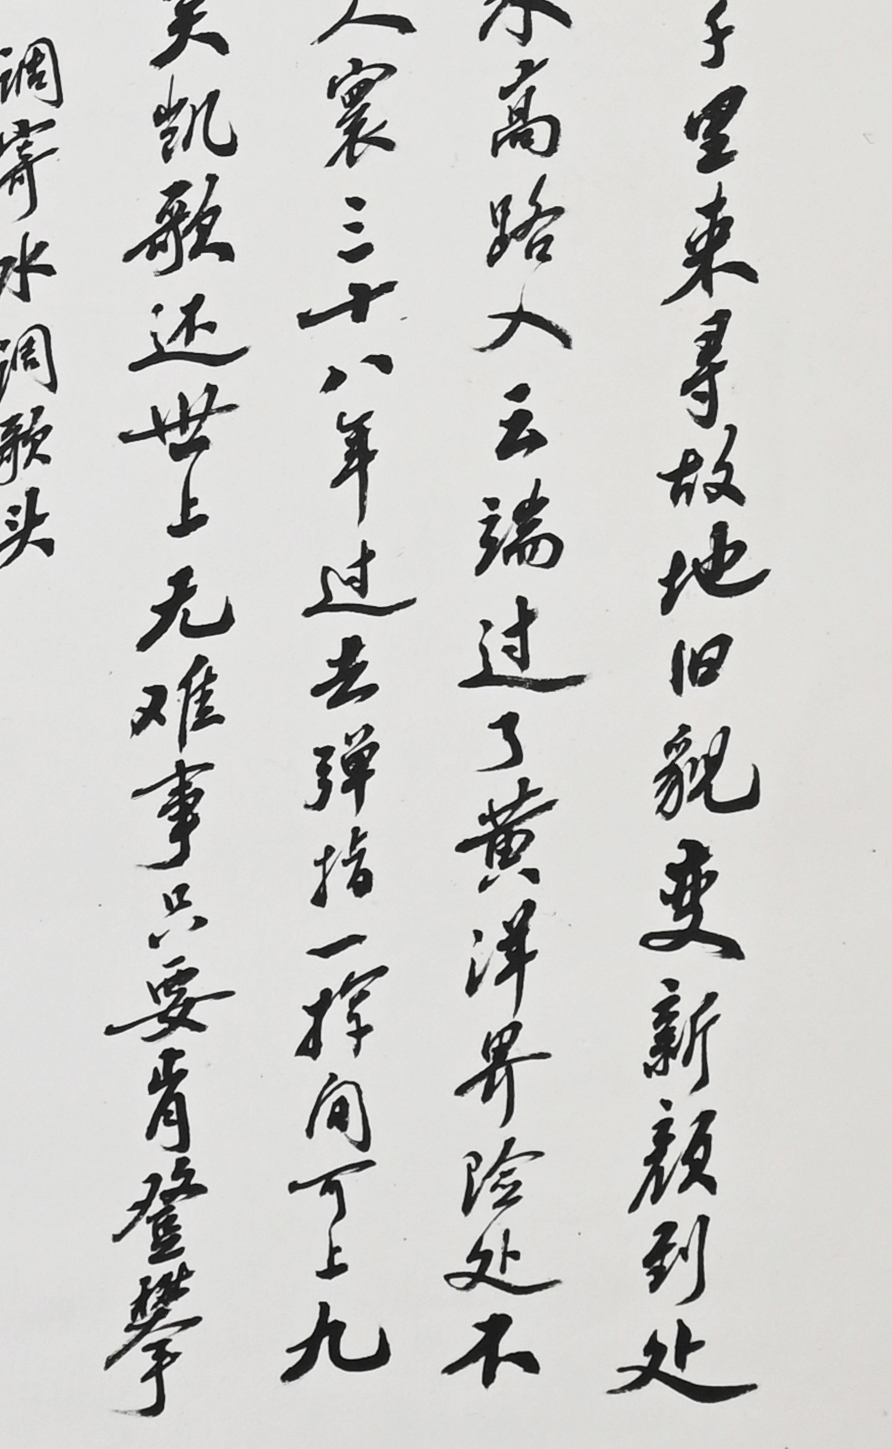 千里来寻故地旧貌变新颜到处
水高路入云端过了黄洋界险处不
人寰三十八年过去弹指一挥间可上九
笑凯歌还世上无难事只要肯登攀
调寄水调歌头